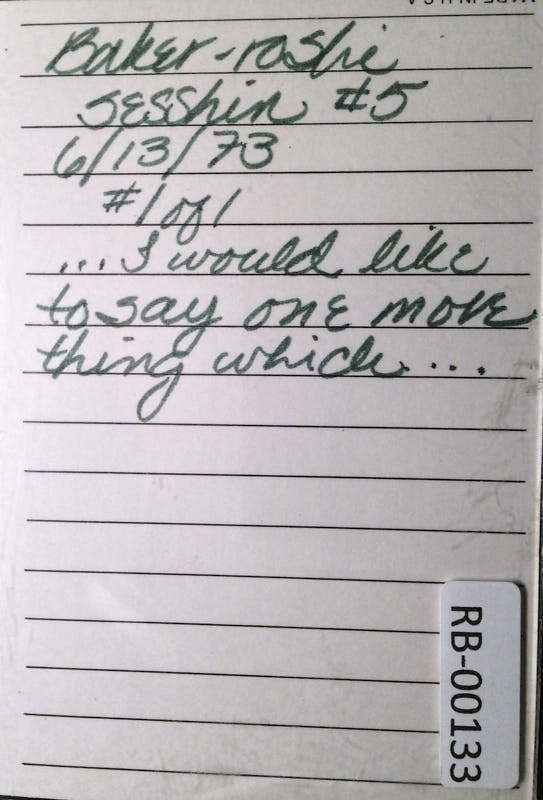 MADE IN U.S.A
Baker-roshi
sesshin #5
6/13/73
#1 of 1
...I would like
to say one more
thing which....
RB-00133